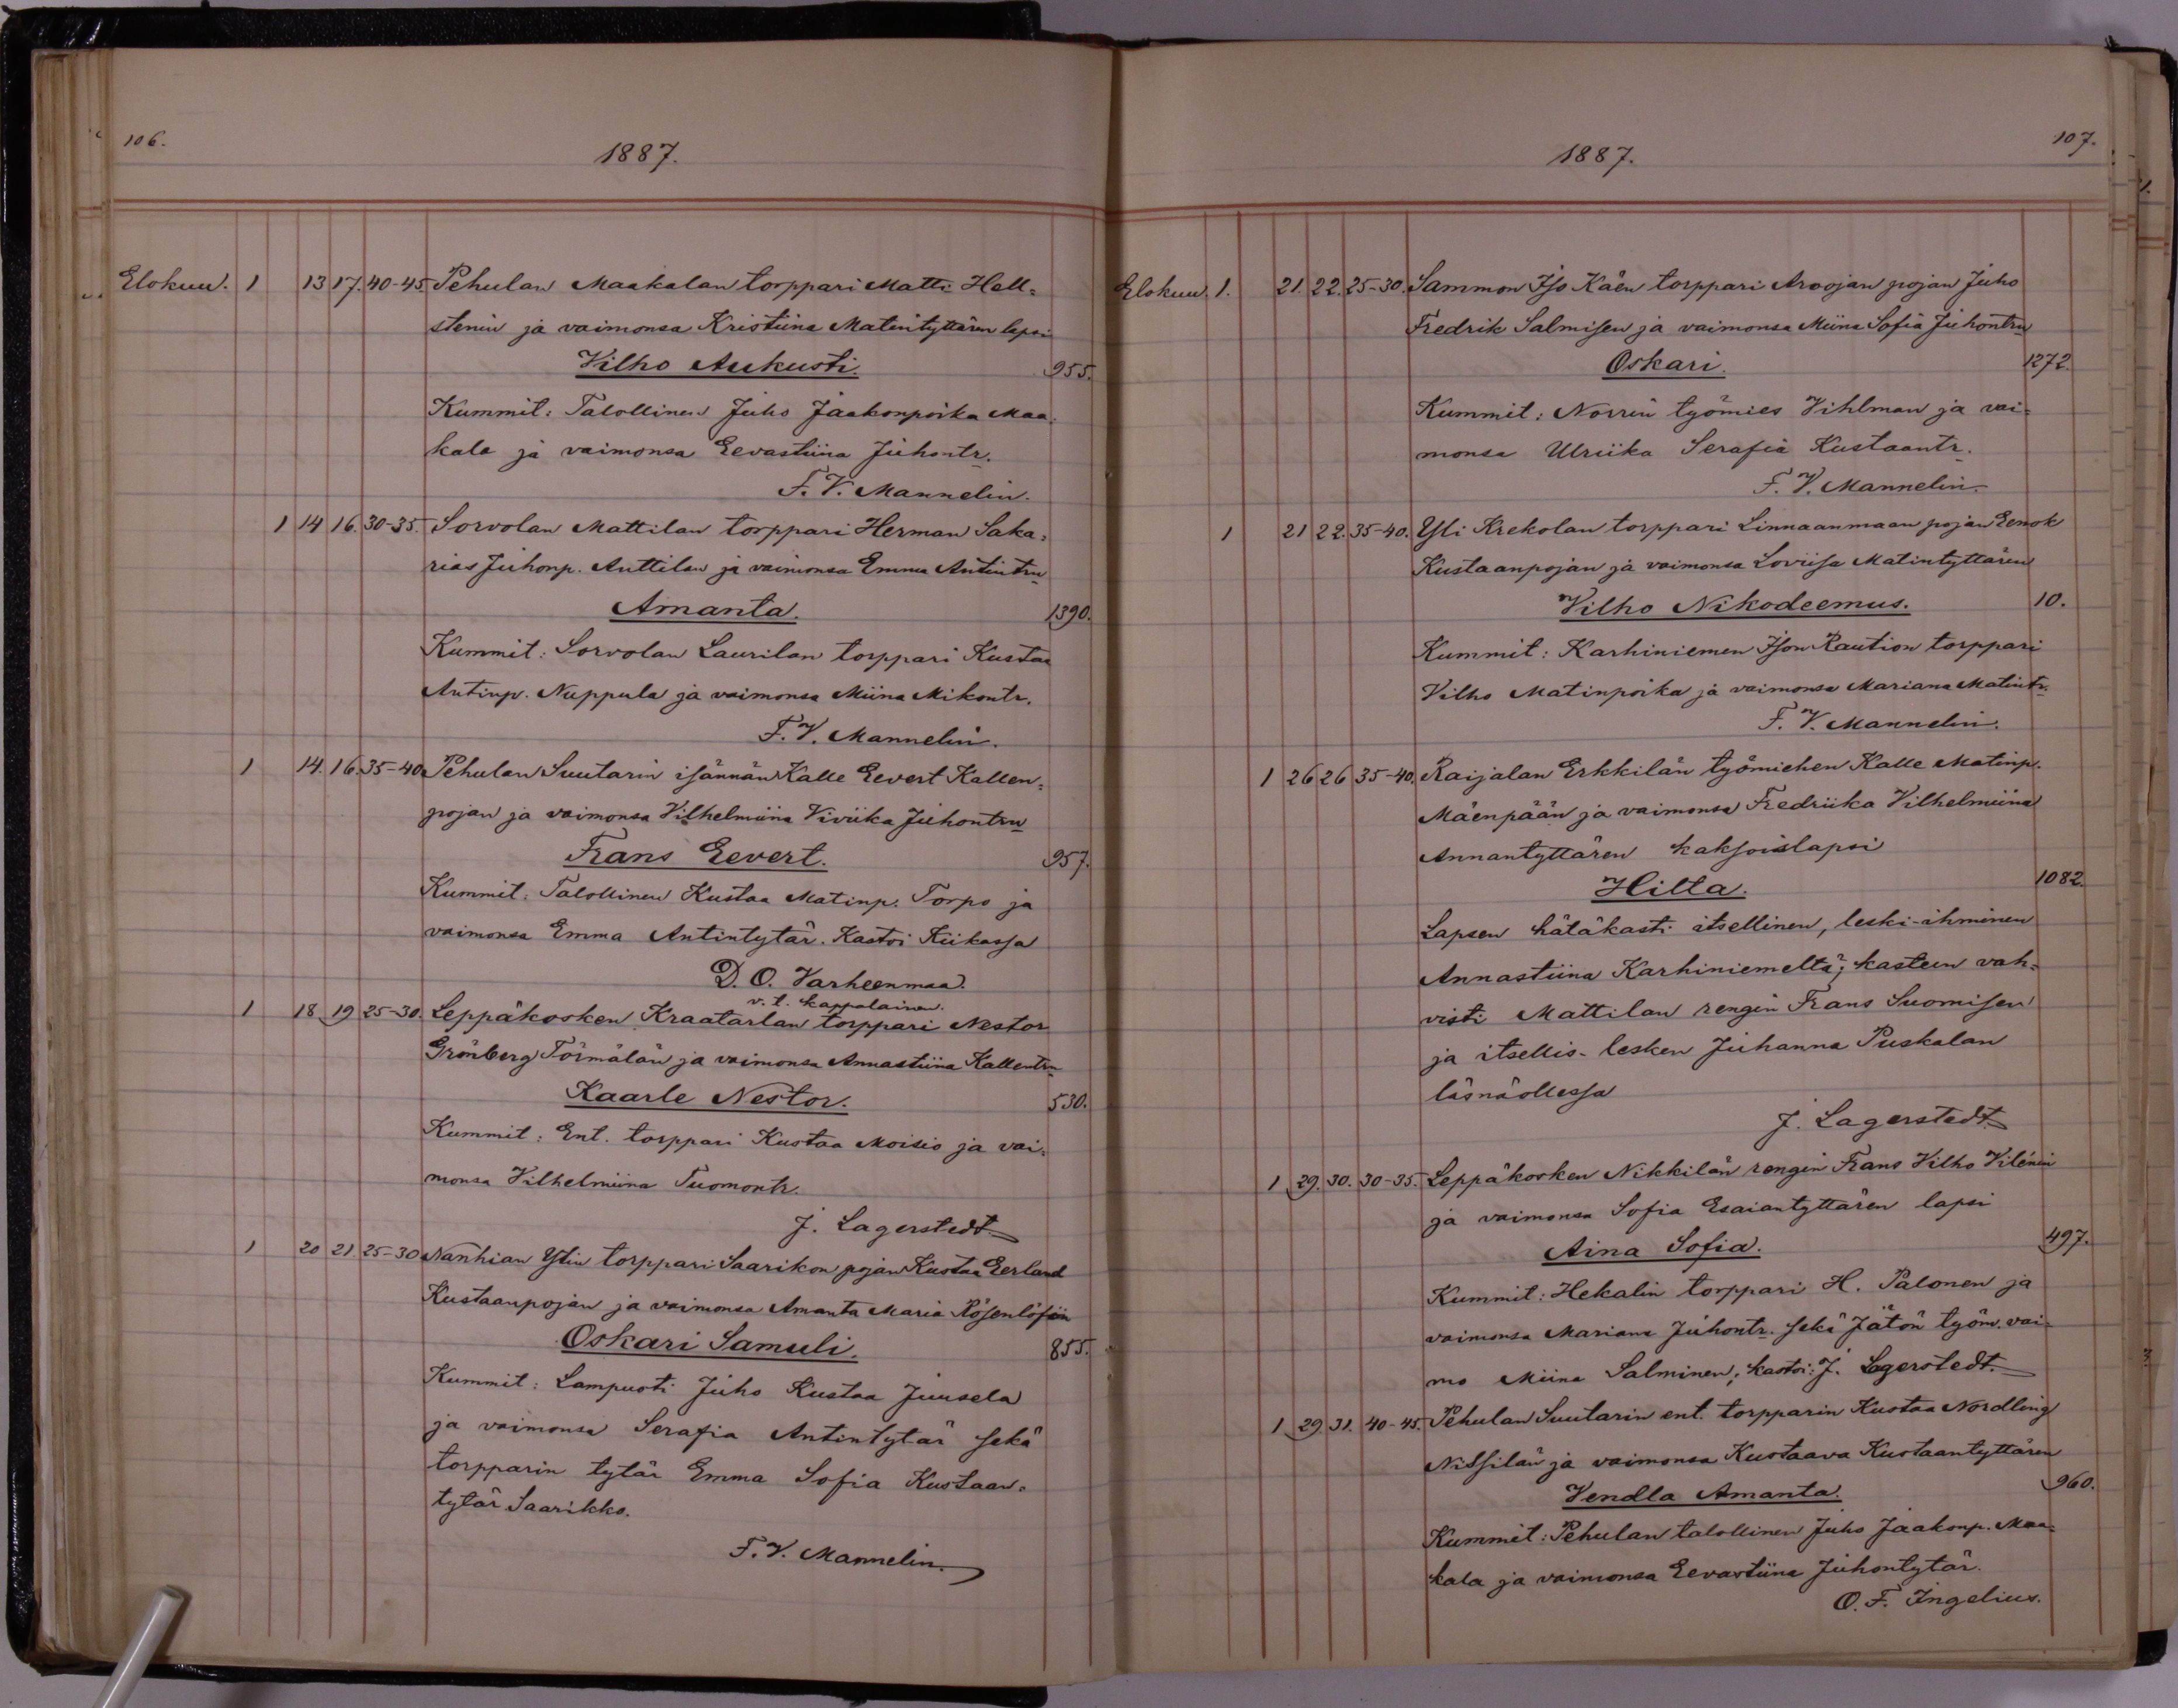 106.
1887.
Elokuu. 1 13 17. 40-45. Pehulan Maakalan torppari Matti Hell=
stenin ja vaimonsa Kristiina Matintyttären lapsi
Vilho Aukusti. 955.
Kummit: Talollinen Juho Jaakonpoika Maa=
kala ja vaimonsa Eevastiina Juhontr.
F. V. Mannelin.
1 14 16. 30-35. Sorvolan Mattilan torppari Herman Saka=
rias Juhonp. Anttilan ja vaimonsa Emma Antintrn
Amanta. 1390.
Kummit: Sorvolan Laurilan torppari Kustaa
Antinp. Nuppula ja vaimonsa Miina Mikontr.
F. V. Mannelin.
1 14. 16. 35-40 Pehulan Suutarin isännän Kalle Eevert Kallen=
pojan ja vaimonsa Vilhelmiina Viviika Juhontrn
Frans Eevert. 957.
Kummit: Talollinen Kustaa Matinp. Torpo ja
vaimonsa Emma Antintytär. Kastoi Kiikassa
D. O. Varheenmaa.
v. t. kappalainen.
1 18 19 25-30. Leppäkosken Kraatarlan torppari Nestor
Grönberg Törmälän ja vaimonsa Annastiina Kallentrn
Kaarle Nestor. 530.
Kummit: Ent. torppari Kustaa Moisio ja vai=
monsa Vilhelmiina Tuomontr.
J. Lagerstedt.
1 20 21 25-30 Nanhian Ylin torppari Saarikon pojan Kustaa Eerland
Kustaanpojan ja vaimonsa Amanta Maria Rosenlöfin
Oskari Samuli. 855.
Kummit: Lampuoti Juho Kustaa Juusela
ja vaimonsa Serafia Antintytär sekä
torpparin tytär Emma Sofia Kustaan=
tytär Saarikko.
F. V. Mannelin.
107.
1887.
Elokuu. 1. 21. 22. 25-30. Sammon Iso Käen torppari Arvojan pojan Juho
Fredrik Salmisen ja vaimonsa Miina Sofia Juhontrn
Oskari. 1272.
Kummit: Norrin työmies Vihlman ja vai=
monsa Ulriika Serafia Kustaantr.
F. V. Mannelin.
1 21 22. 35-40. Yli Krekolan torppari Linnaanmaan pojan Eenok
Kustaanpojan ja vaimonsa Loviisa Matintyttären
Vilho Nikodeemus. 10.
Kummit: Karhiniemen Ison Raution torppari
Vilho Matinpoika ja vaimonsa Mariana Matintr.
F. V. Mannelin.
1 26 26 35-40. Raijalan Erkkilän työmiehen Kalle Matinp.
Mäenpään ja vaimonsa Fredriika Vilhelmiina
Annantyttären kaksoislapsi
Hilta. 1082.
Lapsen hätäkasti itsellinen, leski-ihminen
Annastiina Karhiniemeltä; kasteen vah=
visti Mattilan rengin Frans Suomisen
ja itsellis-lesken Juhanna Puskalan
läsnäollessa
J. Lagerstedt.
1 29. 30. 30-35. Leppäkosken Nikkilän rengin Frans Vilho Vilénin
ja vaimonsa Sofia Esaiantyttären lapsi
Aina Sofia. 497.
Kummit: Hekalin torppari H. Palonen ja
vaimonsa Mariana Juhontr. sekä Jätön työm. vai=
mo Miina Salminen; kastoi: J. Lagerstedt.
1 29. 31. 40-45. Pehulan Suutarin ent. torpparin Kustaa Nordling
Nissilän ja vaimonsa Kustaava Kustaantyttären
Vendla Amanta. 960.
Kummit: Pehulan talollinen Juho Jaakonp. Maa=
kala ja vaimonsa Eevastiina Juhontytär.
O. F. Ingelius.